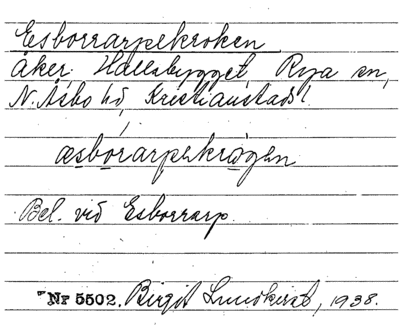 Esborrarpskroken
åker. Hallabygget, Rya sn,
N. Åsbo hd, Kristianstads l.
æsborarpskrɷ̀gen
Bel. vid Esborrarp.
Nr 5502. Birgit Lundkvist, 1938.